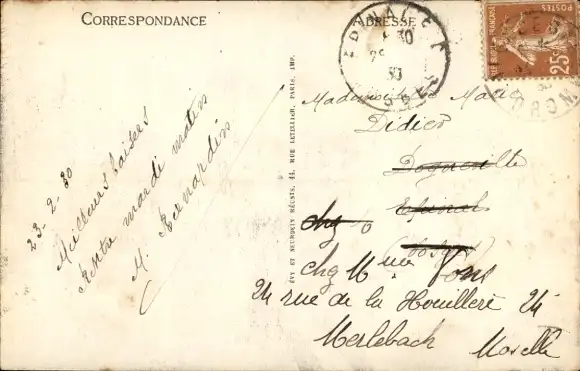 CORRESPONDANCE
ADRESSE
POSTES
25c
23-2-30
Meilleurs baisers
Rentre mardi matin
M. Bernardin
ÉVY ET NEURDEIN RÉUNIS, 44, RUE LETELLIER, PARIS. IMP.
Mademoiselle Marie
Didier
Dogneville
Epinal
Vosges
chez Mme Pons
24 rue de la Houillère 24
Merlebach Moselle